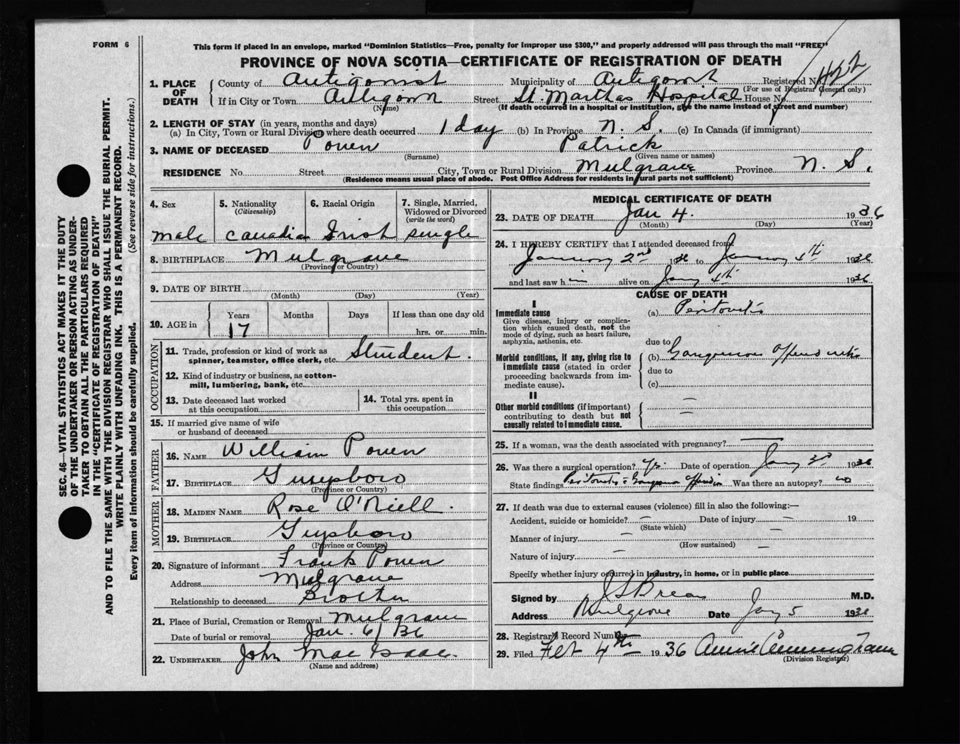 FORM 6
This form if placed in an envelope, marked "Dominion Statistics—Free, penalty for improper use $300," and properly addressed will pass through the mail "FREE"
PROVINCE OF NOVA SCOTIA—CERTIFICATE OF REGISTRATION OF DEATH
1. PLACE OF DEATH
County of Antigonish Municipality of Antigonish Registered No.
(For use of Registrar General only)
If in City or Town Street St. Marthas Hospital House No.
(Name) (If death occurred in a hospital or institution, give the name instead of street and number)
2. LENGTH OF STAY (in years, months and days)
(a) In City, Town or Rural Division where death occurred 1 day (b) In Province N. S. (c) In Canada (if immigrant)
3. NAME OF DECEASED Power Patrick
(Surname) (Given name or names)
RESIDENCE No. Street City, Town or Rural Division Mulgrave Province N. S.
(Residence means usual place of abode. Post Office Address for residents in rural parts not sufficient)
4. Sex 5. Nationality (Citizenship) 6. Racial Origin 7. Single, Married, Widowed or Divorced (write the word)
male Canadian Irish single
8. BIRTHPLACE Mulgrave
(Province or Country)
9. DATE OF BIRTH
(Month) (Day) (Year)
10. AGE in Years Months Days If less than one day old
17 hrs. or min.
OCCUPATION
11. Trade, profession or kind of work as spinner, teamster, office clerk, etc. Student.
12. Kind of industry or business, as cotton-mill, lumbering, bank, etc.
13. Date deceased last worked at this occupation
14. Total yrs. spent in this occupation
15. If married give name of wife or husband of deceased
FATHER
16. NAME William Power
17. BIRTHPLACE Guysboro
(Province or Country)
MOTHER
18. MAIDEN NAME Rose O'Niell.
19. BIRTHPLACE Guysboro
(Province or Country)
20. Signature of informant Frank Power
Address Mulgrave
Relationship to deceased Brother
21. Place of Burial, Cremation or Removal Mulgrave
Date of burial or removal Jan. 6/36
22. UNDERTAKER John MacIsaac.
(Name and address)
MEDICAL CERTIFICATE OF DEATH
23. DATE OF DEATH Jan 4. 1936
(Month) (Day) (Year)
24. I HEREBY CERTIFY that I attended deceased from
January 2nd 1936 to January 4th 1936
and last saw him alive on Jany 4th 1936
CAUSE OF DEATH
I
Immediate cause
Give disease, injury or complication which caused death, not the mode of dying, such as heart failure, asphyxia, asthenia, etc.
(a) Peritonitis
due to
Morbid conditions, if any, giving rise to immediate cause (stated in order proceeding backwards from immediate cause).
(b) Gangrenous Appendicitis
due to
(c)
II
Other morbid conditions (if important) contributing to death but not causally related to immediate cause.
25. If a woman, was the death associated with pregnancy?
26. Was there a surgical operation? Yes Date of operation Jany 3rd 1936
State findings Peritonitis Was there an autopsy? no
27. If death was due to external causes (violence) fill in also the following:—
Accident, suicide or homicide? – Date of injury – 19
(State which)
Manner of injury –
(How sustained)
Nature of injury –
Specify whether injury occurred in industry, in home, or in public place
Signed by M.D.
Address Mulgrave Date Jany 5 1936
28. Registrar's Record Number
29. Filed Feb 4th 1936 Annie
(Division Registrar)
SEC. 46—VITAL STATISTICS ACT MAKES IT THE DUTY
OF THE UNDERTAKER OR PERSON ACTING AS UNDER-
TAKER TO OBTAIN ALL THE PARTICULARS REQUIRED
IN THE "CERTIFICATE OF REGISTRATION OF DEATH"
AND TO FILE THE SAME WITH THE DIVISION REGISTRAR WHO SHALL ISSUE THE BURIAL PERMIT.
WRITE PLAINLY WITH UNFADING INK. THIS IS A PERMANENT RECORD.
Every item of information should be carefully supplied. (See reverse side for instructions.)